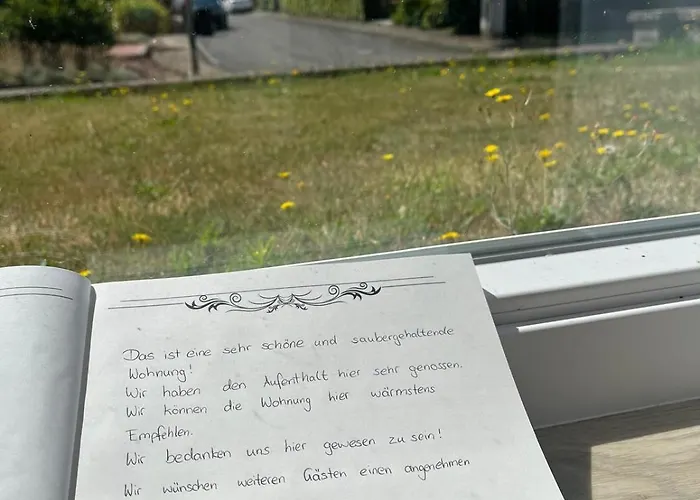 Das ist eine sehr schöne und saubergehaltende
Wohnung!
Wir haben den Aufenthalt hier sehr genossen.
Wir können die Wohnung hier wärmstens
Empfehlen.
Wir bedanken uns hier gewesen zu sein!
Wir wünschen weiteren Gästen einen angenehmen